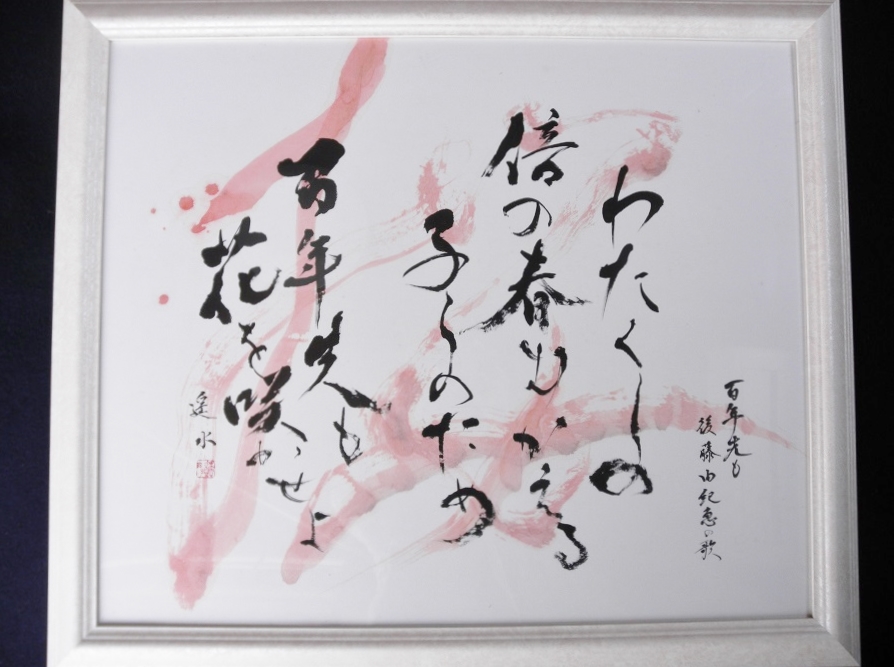 百年先も
後藤由紀恵の歌
わたくしの
倍の春むかえる
子らのため
百年先も
花を咲かせよ
遥水